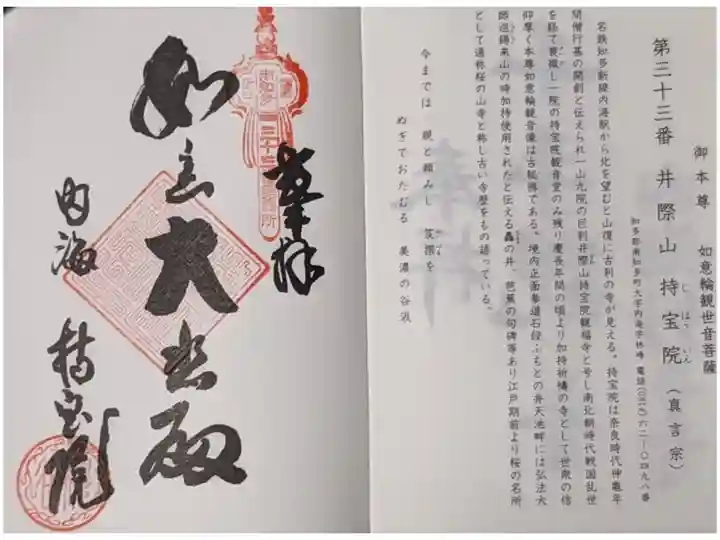 御本尊 如意輪観世音菩薩
知多郡南知多町大字内海字林之峰 電話(〇五六九)六二―〇四九八番
第三十三番 井際山 持宝院(真言宗)
じ ほう いん
名鉄知多新線内海駅から北を望むと山腹に古刹の寺が見える。持宝院は奈良時代神亀年
間僧行基の開創と伝えられ一山九院の巨刹井際山持宝院観福寺と号し南北朝時代戦国乱世
を経て衰微し一院の持宝院観音堂のみ残り慶長年間の頃より加持祈祷の寺として世衆の信
仰厚く本尊如意輪観音像は古秘佛である。境内正面参道石段ふもとの弁天池畔には弘法大
師巡錫来山の時加持使用されたと伝える轟の井、芭蕉の句碑等あり江戸期前より桜の名所
として通称桜の山寺と称し古い寺歴をもの語っている。
今までは 親と頼みし 笈摺を
ぬぎておたむる 美濃の谷汲
奉拝
如意大悲殿
内海 持宝院